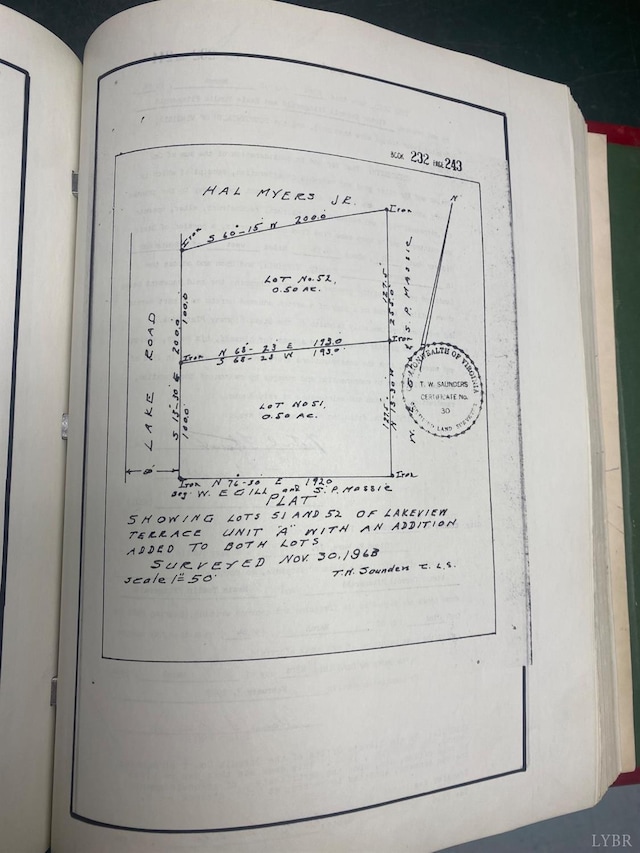 BOOK 232 PAGE 243
HAL MYERS JR.
N
Iron
Iron
S 60°-15' W 200.0'
LOT No. 52,
0.50 AC.
LAKE ROAD
S 13-30 E 200.0
100.0
100.0
127.5'
255.0
127.5'
N 13-30 W
S. P. MASSIE
Iron N 68°-23' E 193.0' Iron
S 68-23 W 193.0'
LOT NO 51,
0.50 AC.
COMMONWEALTH OF VIRGINIA
T. W. SAUNDERS
CERTIFICATE No.
30
LAND SURVEYOR
Iron N 76°-30' E 192.0 Iron
Beg. W. E GILL and S. P. MASSIE
PLAT
SHOWING LOTS 51 AND 52 OF LAKEVIEW
TERRACE UNIT "A" WITH AN ADDITION
ADDED TO BOTH LOTS
SURVEYED NOV. 30, 1968
scale 1"=50'
T.W. Saunders C. L. S.
LYBR